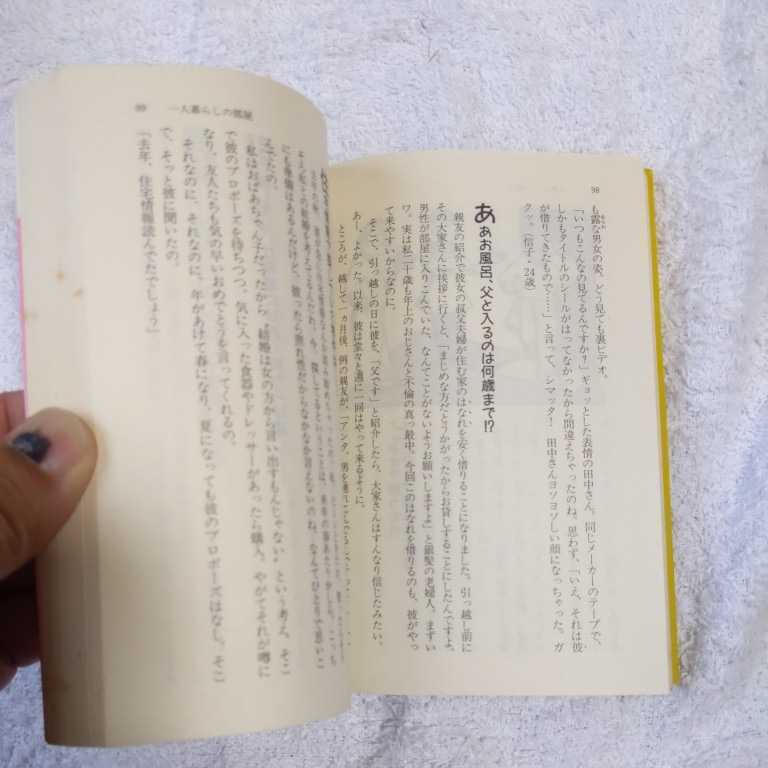 98
も露な男女の姿。どう見ても裏ビデオ。
「いつもこんなの見てるんですか?」ギョッとした表情の田中さん。同じメーカーのテープで、
しかもタイトルのシールがはってなかったから間違えちゃったのね。思わず、「いえ、それは彼
が借りてきたもので……」と言って、シマッタ! 田中さんヨソヨソしい顔になっちゃった。ガ
クッ。(信子・24歳)
ああお風呂、父と入るのは何歳まで!?
親友の紹介で彼女の叔父夫婦が住む家のはなれを安く借りることになりました。引っ越し前に
その大家さんに挨拶に行くと、「まじめな方だとうかがったからお貸しすることにしたんですよ。
男性が部屋に入りこんでいた、なんてことがないようお願いしますよ」と銀髪の老婦人。まずい
ワ。実は私二十歳も年上のおじさんと不倫の真っ最中。今回このはなれを借りるのも、彼がやっ
て来やすいからなのに。
そこで、引っ越しの日に彼を、「父です」と紹介したら、大家さんはすんなり信じたみたい。
あー、よかった。以来、彼は堂々と週に一回はやって来るように。
ところが、越して一ヵ月後、例の親友が、「アンタ、男を連れこんでる
99 一人暮らしの部屋
にも準備はあるんだけど、彼ったら照れ性だからなかなか言えないのね、なんてひとりで思いこ
んでたの。
私はおばあちゃん子だったから、"結婚は女の方から言い出すもんじゃない"という考え。そこ
で彼のプロポーズを待ちつつ、気に入った食器やドレッサーがあったら購入。やがてそれが噂に
なり、友人たちも気の早いおめでとうを言ってくれるの。
それなのに、それなのに、年があけて春になり、夏になっても彼のプロポーズはなし。そこ
で、そっと彼に聞いたの。
「去年、住宅情報読んでたでしょう?」